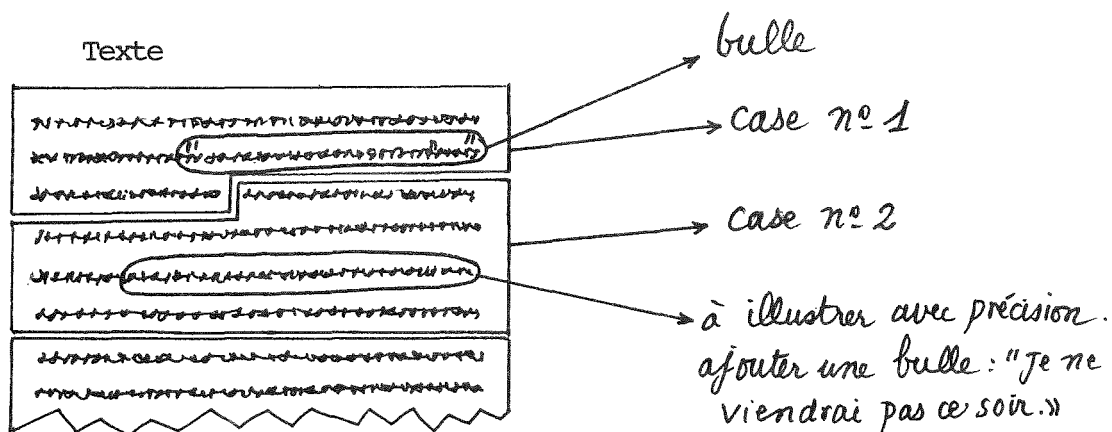 Texte
bulle
case nº 1
case nº 2
à illustrer avec précision.
ajouter une bulle : "Je ne
viendrai pas ce soir.»